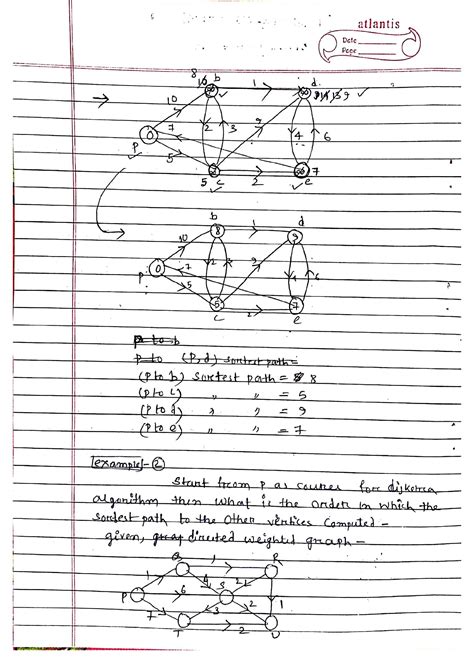 atlantis
Date
Page
8 10 b 1 d
∞ ∞ 11 14 13 9
10
0 7 2 3 9 4 6
P 5
∞ ∞ 7
5 c 2 e
b 1 d
8 9
10
0 7 2 3 9 4 6
P 5
5 7
c 2 e
P to b
P to (P, d) sortest path =
(P to b) Sortest path = 8 8
(P to c) " " = 5
(P to d) " " = 9
(P to e) " " = 7
example - 2
Start from P as courses for dijkstra
algorithm then what is the order in which the
sordest path to the other vertices computed -
given, grap directed weighted graph -
Q 1 R
1 4 2
P 6 S 1
7 3 2
T 2 U